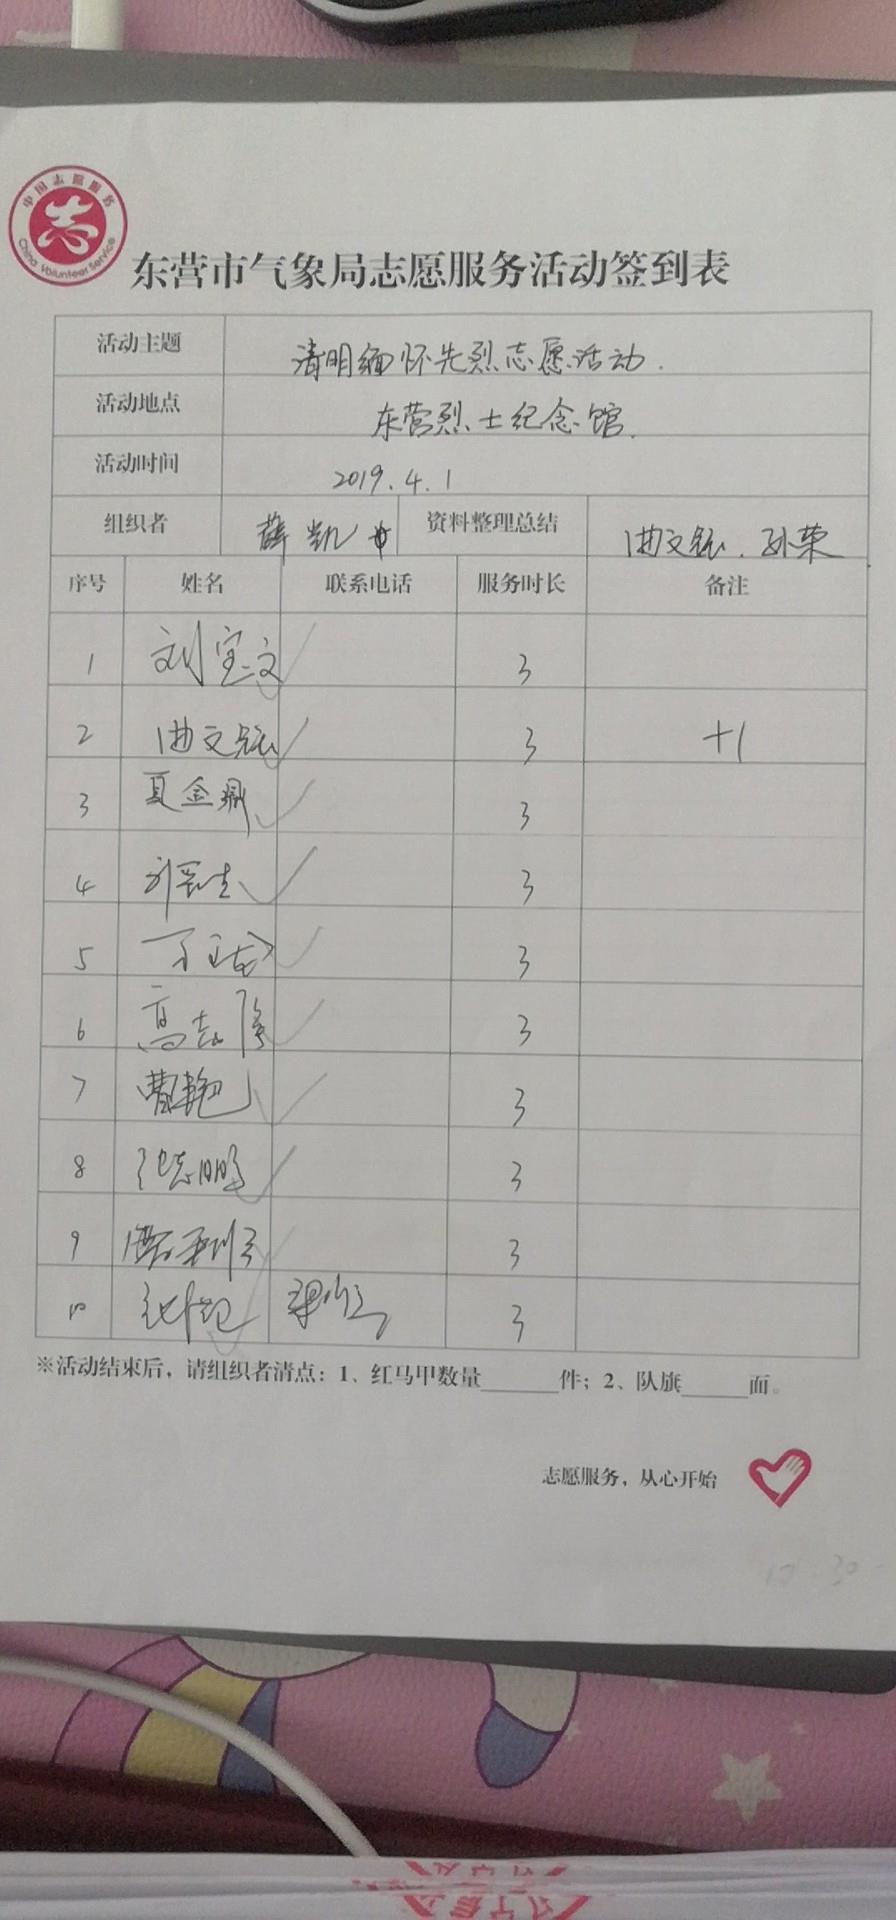 中国志愿服务
志
China Volunteer Service
东营市气象局志愿服务活动签到表
活动主题 清明缅怀先烈志愿活动.
活动地点 东营烈士纪念馆.
活动时间 2019.4.1
组织者 薛凯 资料整理总结 曲文 . 孙荣
序号 姓名 联系电话 服务时长 备注
1 刘宝文 3
2 曲文 3 +1
3 夏金鼎 3
4 3
5 3
6 高志 3
7 曹艳 3
8 张志鹏 3
9 3
10 3
※活动结束后，请组织者清点：1、红马甲数量______件；2、队旗_____面。
志愿服务，从心开始